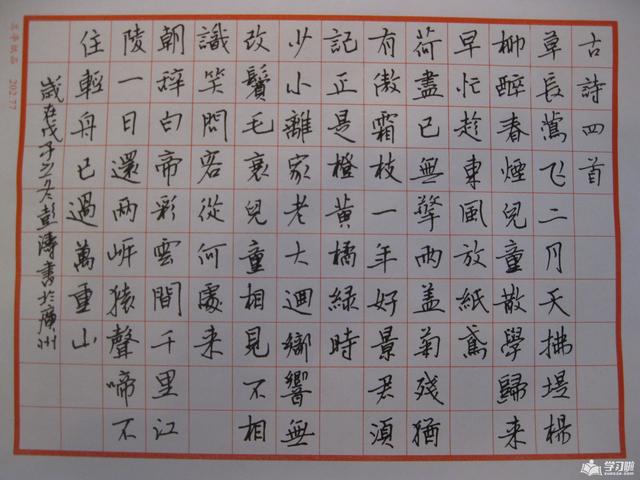 古詩四首
草長鶯飛二月天拂堤楊
柳醉春煙兒童散學歸来
早忙趁東風放紙鳶
荷盡已無擎雨盖菊殘猶
有傲霜枝一年好景君須
記正是橙黃橘緑時
少小離家老大迴鄉響無
改鬢毛衰兒童相見不相
識笑問客從何處来
朝辤白帝彩雲間千里江
陵一日還兩岍猿聲啼不
住輕舟已過萬重山
歲在戊子之冬彭濤書於廣州
202 77
学习啦